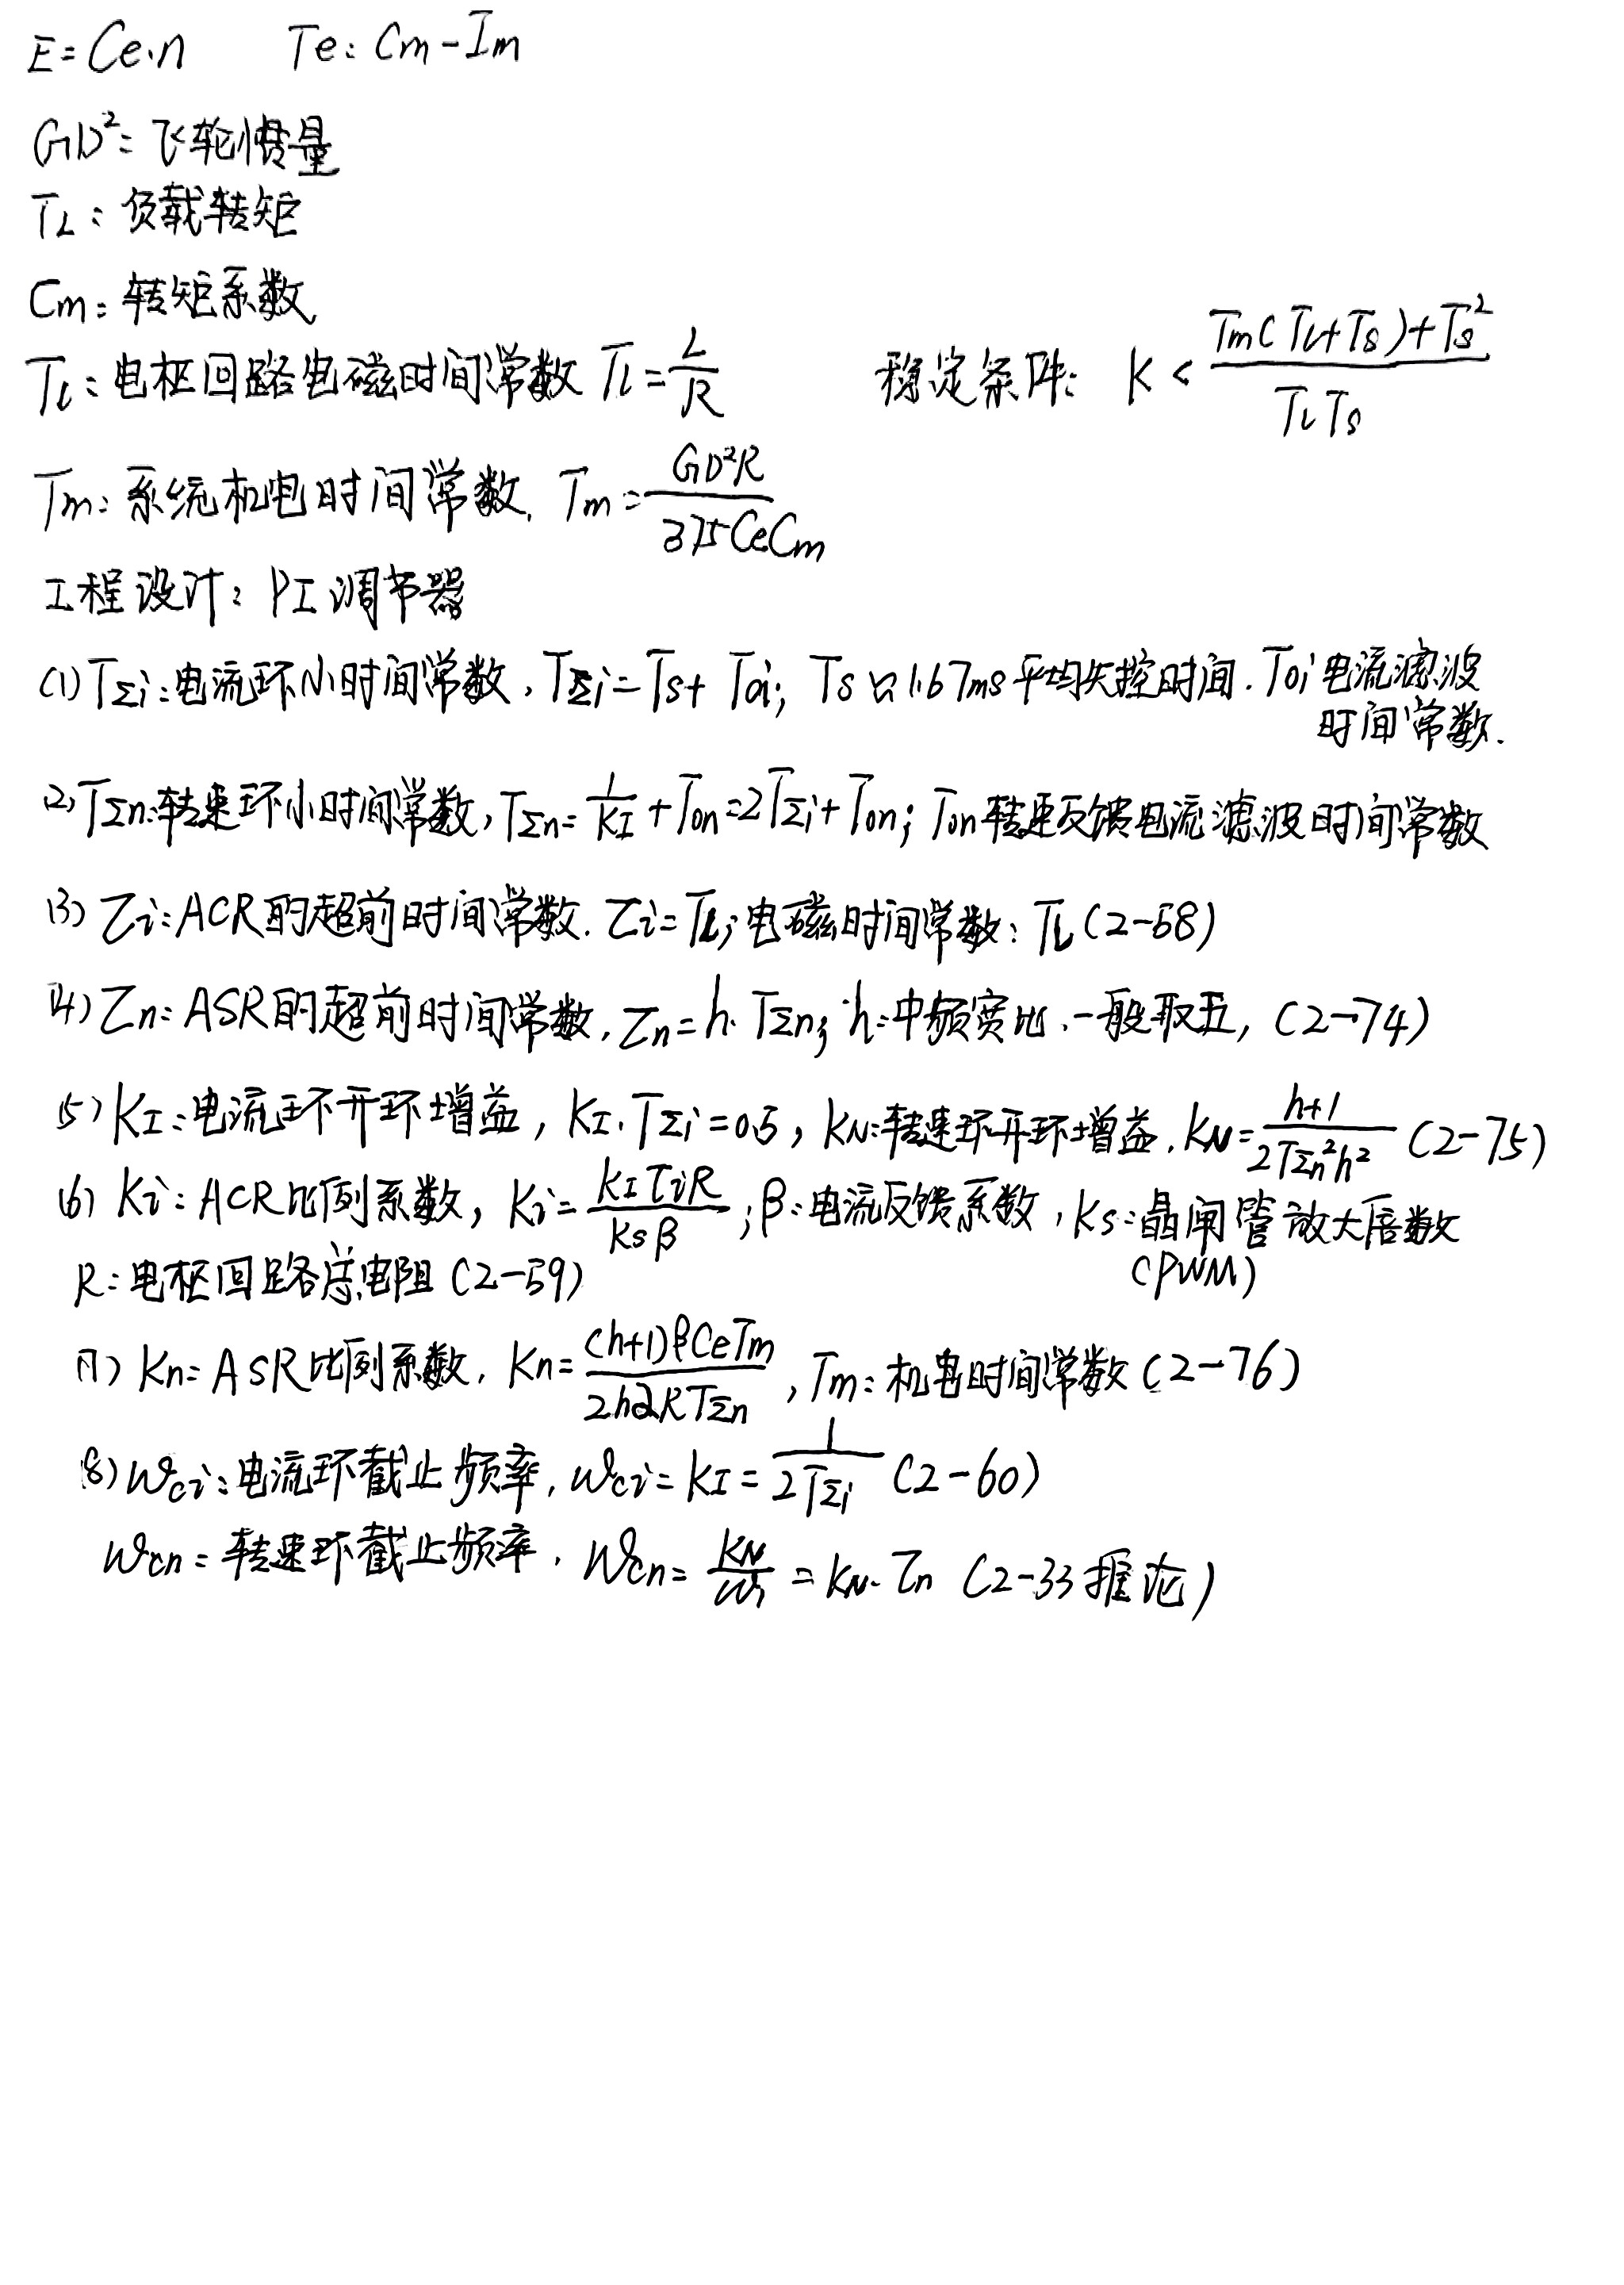 E=Ce·n Te: Cm-Im
GD²: 飞轮惯量
TL: 负载转矩
Cm: 转矩系数
Tl: 电枢回路电磁时间常数 Tl=L/R 稳定条件: K < (Tm(Tl+Ts)+Ts²)/(TlTs)
Tm: 系统机电时间常数, Tm=GD²R/(375CeCm)
工程设计: PI调节器
(1) TΣi: 电流环小时间常数, TΣi=Ts+Toi; Ts≈1.67ms 平均失控时间. Toi电流滤波
时间常数.
(2) TΣn: 转速环小时间常数, TΣn=1/KI+Ton=2TΣi+Ton; Ton转速反馈电流滤波时间常数
(3) τi: ACR的超前时间常数. τi=Tl; 电磁时间常数: Tl (2-58)
(4) τn: ASR的超前时间常数, τn=h·TΣn; h:中频宽比, 一般取五, (2-74)
(5) KI: 电流环开环增益, KI·TΣi=0.5, KN:转速环开环增益, KN=(h+1)/(2TΣn²h²) (2-75)
(6) Ki: ACR比例系数, Ki=KIτiR/(Ksβ); β:电流反馈系数, Ks:晶闸管放大倍数
(PWM)
R: 电枢回路总电阻 (2-59)
(7) Kn: ASR比例系数, Kn=(h+1)βCeTm/(2hαRTΣn), Tm: 机电时间常数 (2-76)
(8) Wci: 电流环截止频率, Wci=KI=1/(2TΣi) (2-60)
Wcn: 转速环截止频率, Wcn=KN/W1=KN·τn (2-33推论)